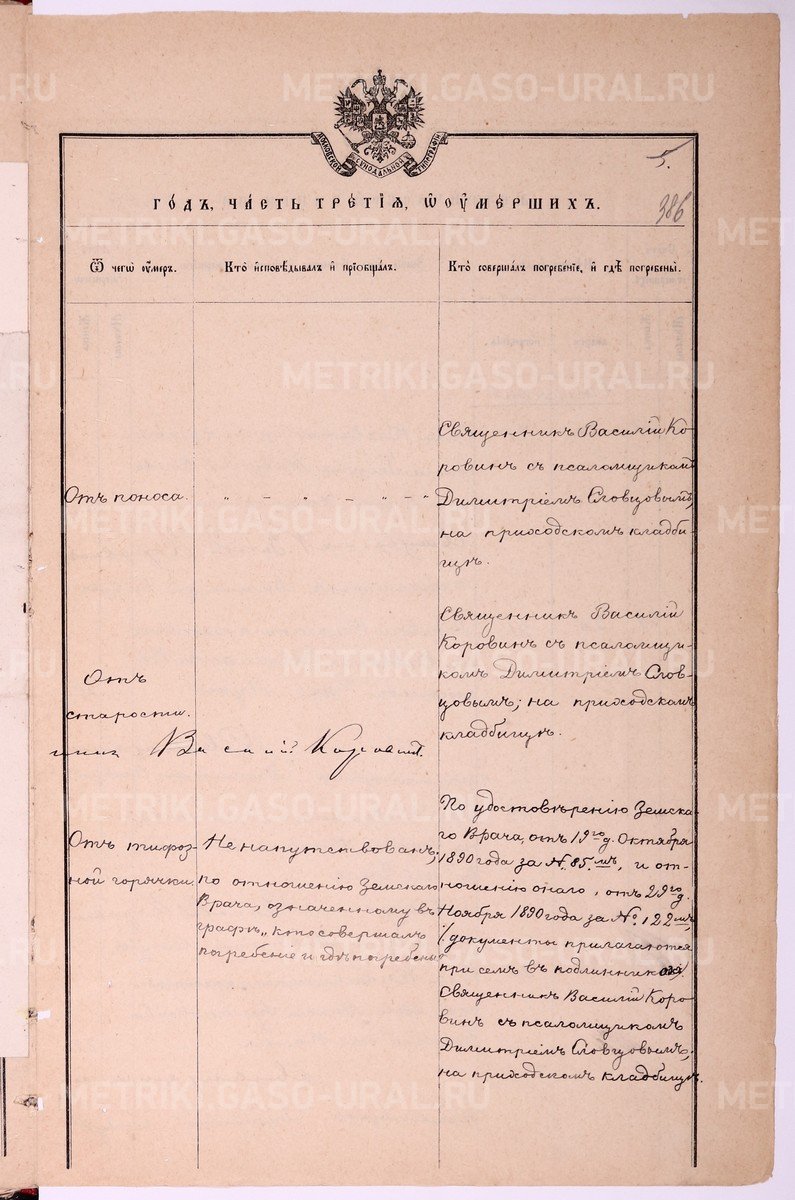 METRIKI.GASO-URAL.RU
МОСКОВСКОЙ СѴНОДАЛЬНОЙ ТИПОГРАФІИ
5.
ГО́ДЪ, ЧА́СТЬ ТРЕ́ТІѦ, Ѿ ОУ҆МЕ́РШИХЪ.
386
Ѿ чегѡ̀ оу҆́меръ.
Кто̀ и҆сповѣ́дывалъ и҆ приѡбща́лъ.
Кто̀ соверша́лъ погребе́нїе, и҆ гдѣ̀ погребены̀.
Отъ поноса.
" – " – " – "
Священникъ Василій Ко
ровинъ съ псаломщикомъ
Димитріемъ Словцовымъ,
на приходскомъ кладби-
щѣ.
Отъ
старости.
Священникъ Василій
Коровинъ съ псаломщи-
комъ Димитріемъ Слов-
цовымъ; на приходскомъ
кладбищѣ.
никъ Василій Коровинъ.
Отъ тифоз-
ной горячки.
Не напутствованъ;
по отношенію Земскаго
Врача, означенному въ
графѣ „кто совершалъ
погребеніе и гдѣ погребены"
По удостовѣренію Земска-
го Врача, отъ 19го д. Октября
1890 года за №. 85.мъ, и от-
ношенію онаго, отъ 29го д.
Ноября 1890 года за № 122мъ,
/. документы прилагаются
при семъ въ подлинникахъ/.
Священникъ Василій Коро
винъ съ псаломщикомъ
Димитріемъ Словцовымъ;
на приходскомъ кладбищѣ.